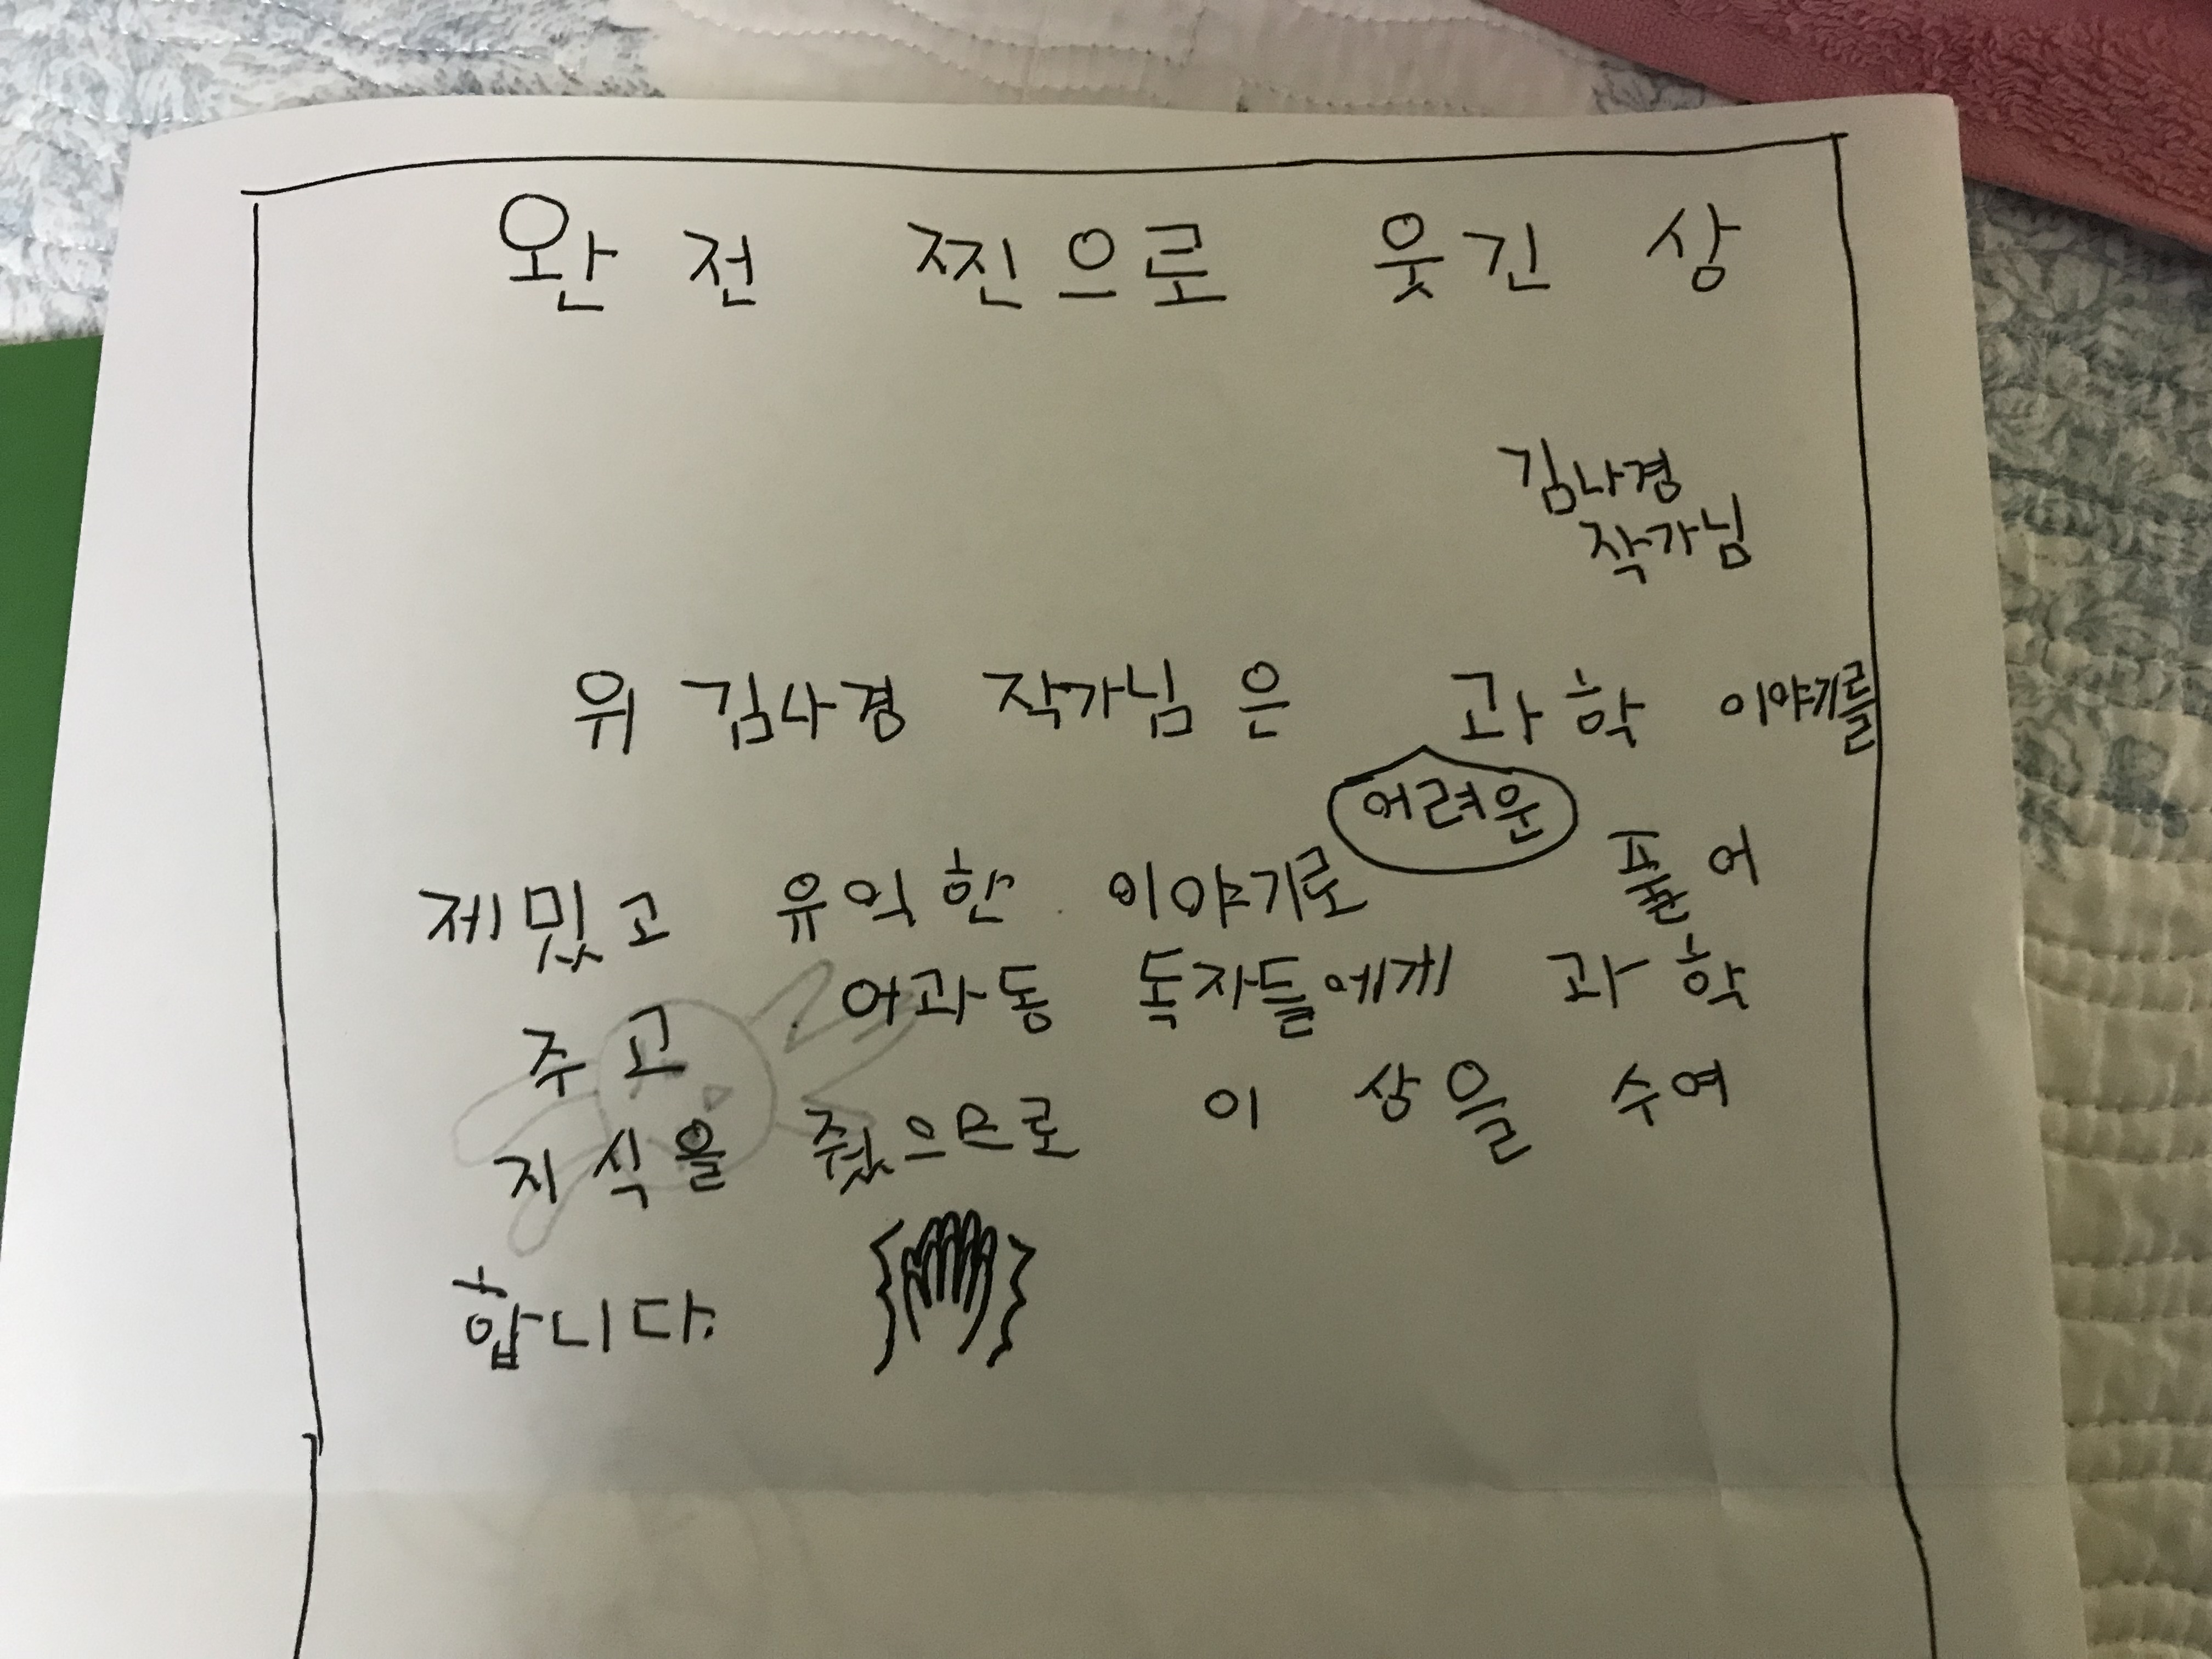 완전 찐으로 웃긴 상
김나경
작가님
위 김나경 작가님은 과학 이야기를
어려운
제밌고 유익한 이야기로 풀어
주고 어과동 독자들에게 과학
지식을 줬으므로 이 상을 수여
합니다.